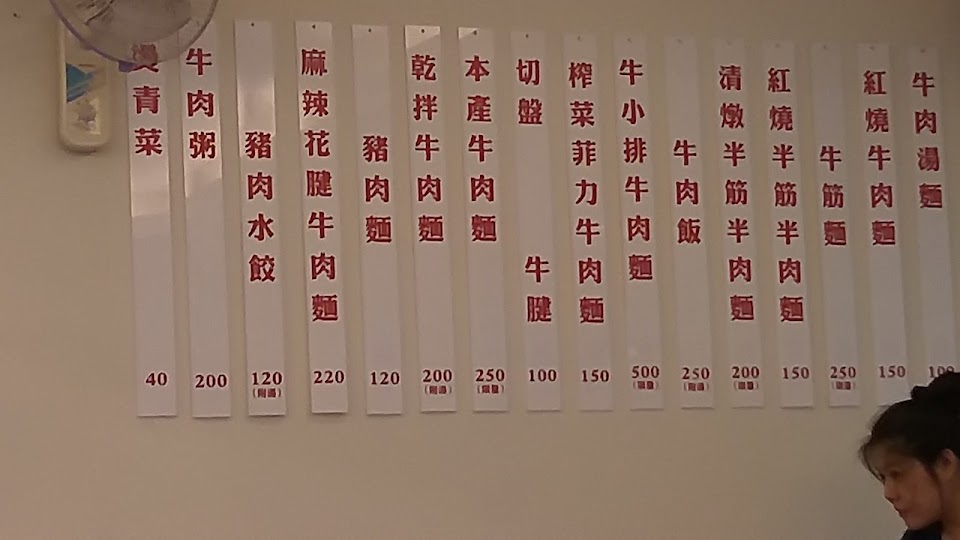 牛肉湯麵
100
紅燒牛肉麵
150
牛筋麵
250
(限量)
紅燒半筋半肉麵
150
清燉半筋半肉麵
200
(限量)
牛肉飯
250
(附湯)
牛小排牛肉麵
500
(限量)
榨菜菲力牛肉麵
150
切盤 牛腱
100
本產牛肉麵
250
(限量)
乾拌牛肉麵
200
(附湯)
豬肉麵
120
麻辣花腱牛肉麵
220
豬肉水餃
120
(附湯)
牛肉粥
200
燙青菜
40